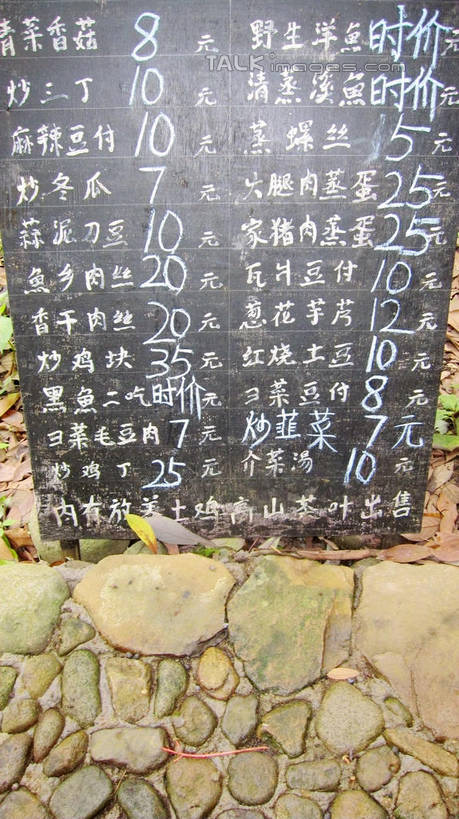 青菜香菇 8 元
炒三丁 10 元
麻辣豆付 10 元
炒冬瓜 7 元
蒜泥刀豆 10 元
魚乡肉丝 20 元
香干肉丝 20 元
炒鸡块 35 元
黑魚二吃 时价
彐菜毛豆肉 7 元
炒鸡丁 25 元
野生洋魚 时价元
清蒸溪魚 时价元
蒸螺丝 15 元
火腿肉蒸蛋 25 元
家猪肉蒸蛋 25 元
瓦片豆付 10 元
葱花芋艿 12 元
红烧土豆 10 元
彐菜豆付 8 元
炒韮菜 7 元
介菜湯 10 元
内有放养土鸡高山茶叶出售
TALKimages.com